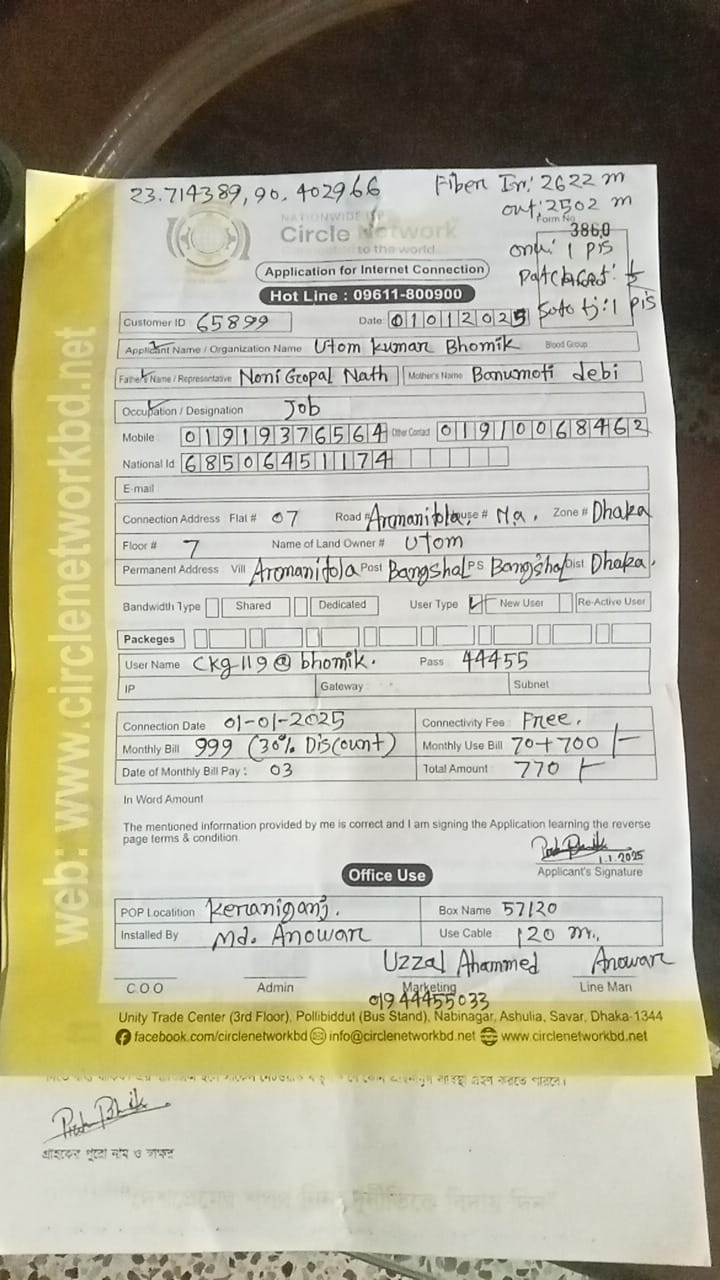 23.714389, 90.402966
Fiber In: 2622 m
out: 2502 m
NATIONWIDE ISP
Form No
Circle Network
3860
to the world
onu: 1 pis
Application for Internet Connection
Hot Line : 09611-800900
Customer ID 65899
Date: 01012025
Applicant Name / Organization Name Utom kumar Bhomik Blood Group
Father's Name / Representative Noni Gopal Nath Mother's Name Banumoti debi
Occupation / Designation Job
Mobile 01919376564 Other Contact 01910068462
National Id 68506451174
E-mail
Connection Address Flat # 07 Road # Armanitola, House # N.a. Zone # Dhaka
Floor # 7 Name of Land Owner # Utom
Permanent Address Vill Aromanitola Post Bangshal PS Bangshal Dist Dhaka.
Bandwidth Type Shared Dedicated User Type New User Re-Active User
Packeges
User Name Ckg-119@bhomik. Pass 44455
IP Gateway Subnet
Connection Date 01-01-2025 Connectivity Fee: Free.
Monthly Bill 999 (30% Discount) Monthly Use Bill 70+700/-
Date of Monthly Bill Pay: 03 Total Amount 770/-
In Word Amount
The mentioned information provided by me is correct and I am signing the Application learning the reverse
page terms & condition.
1.1.2025
Applicant's Signature
Office Use
POP Locatition Keranigonj. Box Name 57/20
Installed By Md. Anowar Use Cable 120 m.
Uzzal Ahammed Anowar
C.O.O Admin Marketing Line Man
01944455033
Unity Trade Center (3rd Floor), Pollibiddut (Bus Stand), Nabinagar, Ashulia, Savar, Dhaka-1344
facebook.com/circlenetworkbd info@circlenetworkbd.net www.circlenetworkbd.net
web: www.circlenetworkbd.net
গ্রাহকের পুরো নাম ও স্বাক্ষর